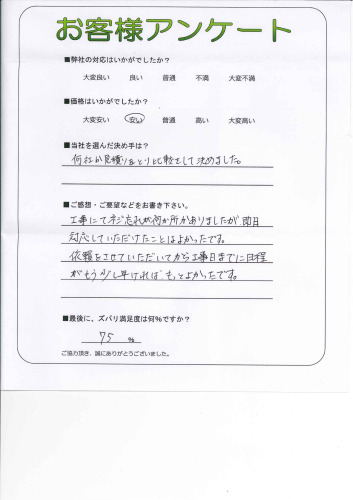 お客様アンケート
■弊社の対応はいかがでしたか？
大変良い 良い 普通 不満 大変不満
■価格はいかがでしたか？
大変安い 安い 普通 高い 大変高い
■当社を選んだ決め手は？
何社か見積りをとり比較をして決めました。
■ご感想・ご要望などをお書き下さい。
工事にてネジ忘れが何か所かありましたが即日
対応していただけたことはよかったです。
依頼をさせていただいてから工事日までに日程
がもう少し早ければ、もっとよかったです。
■最後に、ズバリ満足度は何％ですか？
75 %
ご協力頂き、誠にありがとうございました。